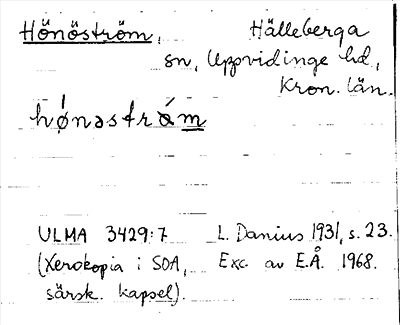 Hönöström, Hälleberga
sn, Uppvidinge hd,
Kron. län.
hǿnəstrám
ULMA 3429:7 L. Danius 1931, s. 23.
(Xerokopia i SOA, Exc. av E.Å. 1968.
särsk. kapsel).